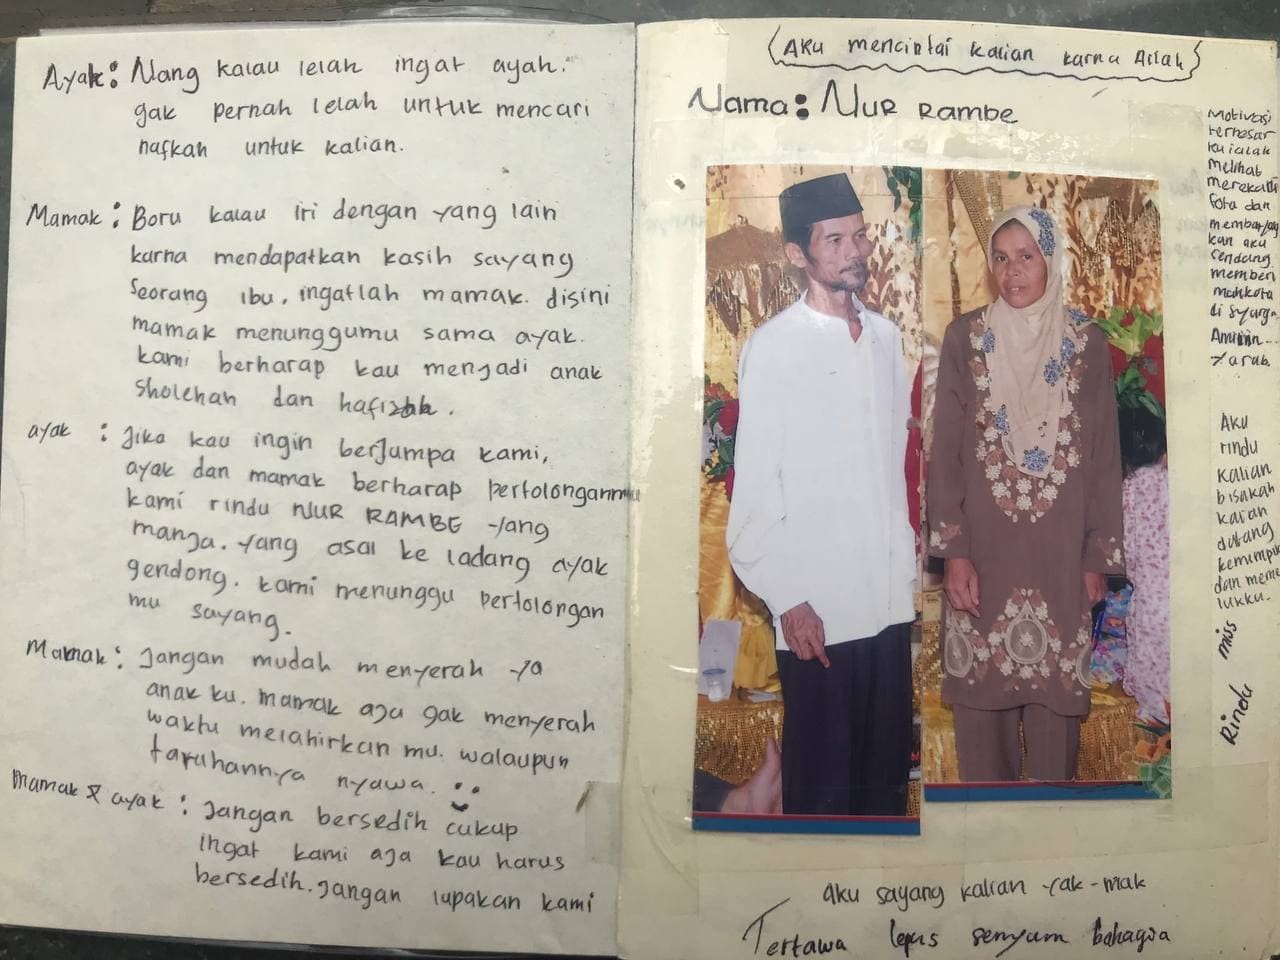 Ayah: Nang kalau lelah ingat ayah.
gak pernah lelah untuk mencari
nafkah untuk kalian.
Mamak: Boru kalau iri dengan yang lain
karna mendapatkan kasih sayang
seorang ibu, ingatlah mamak. disini
mamak menunggumu sama ayak.
kami berharap kau menjadi anak
sholehah dan hafizah.
ayak : Jika kau ingin berjumpa kami,
ayak dan mamak berharap pertolonganmu
kami rindu NUR RAMBE yang
manja. yang asal ke ladang ayak
gendong. kami menunggu pertolongan
mu sayang.
Mamak: Jangan mudah menyerah ya
anak ku. mamak aja gak menyerah
waktu melahirkan mu. walaupun
taruhannya nyawa.
mamak & ayak : Jangan bersedih cukup
ingat kami aja kau harus
bersedih. Jangan lupakan kami
(Aku mencintai kalian karna Allah)
Nama: NUR RAMBE
Motivasi
terbesar
ku ialah
melihat
mereka di
foto dan
membayang
kan aku
sendang
memberi
mahkota
di syurga.
Amiin...
Yarab.
Aku
rindu
kalian
bisakah
kalian
datang
kemimpik
dan meme
lukku.
miss
Rindu
Aku sayang kalian yak-mak
Tertawa lepas senyum bahagia